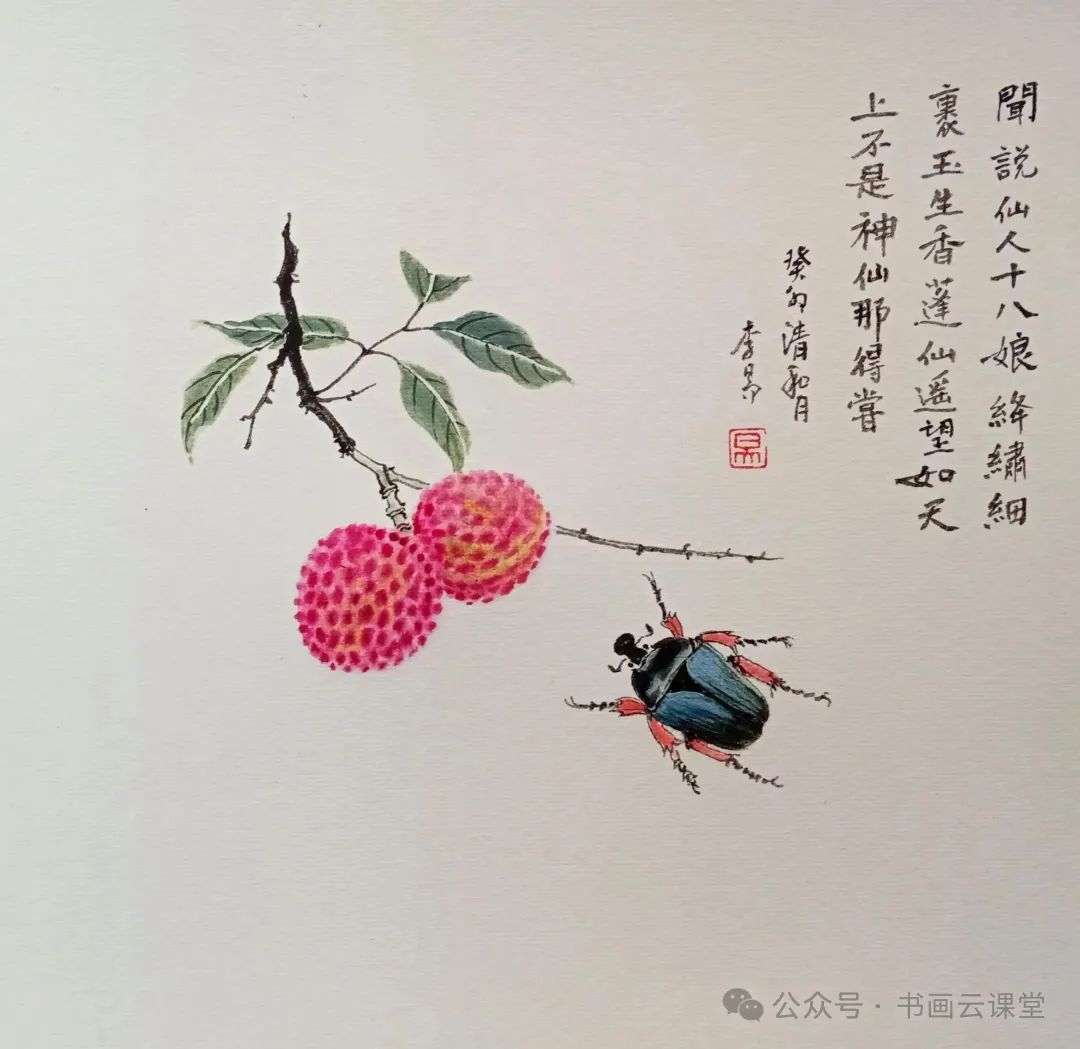 聞説仙人十八娘絳繡細
裹玉生香蓬仙遥望如天
上不是神仙那得嘗
癸卯清和月
李昂
公众号 · 书画云课堂